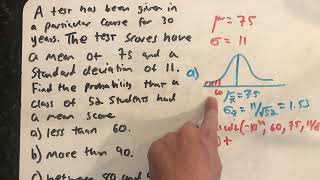 A test has been given in
a particular course for 30
years. The test scores have
a mean of 75 and a
standard deviation of 11.
Find the probability that a
class of 52 students had
a mean score
a) less than 60.
b) more than 90.
c) between 80 and
μ = 75
σ = 11
a)
60
μx̄ = 75
σx̄ = 11/√52 = 1.53
60, 75, 11/√